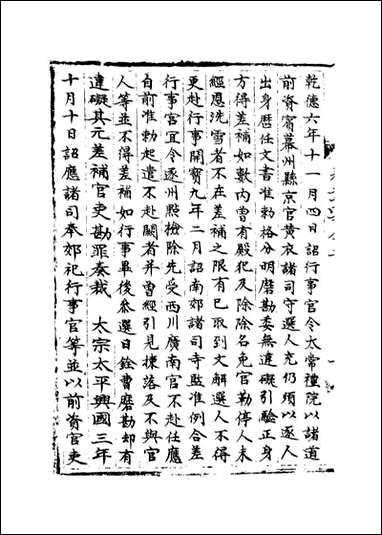 乾德六年十一月四日詔行事官令太常禮院以諸道
前資賓幕州縣京官黃衣諸司守選人充仍須以逐人
出身歷任文書准勅格分明磨勘委無違礙引驗正身
方得差補如數內曾有殿犯及除除名免官勒停人未
經恩洗雪者不在差補之限有已取到文解選人不得
更赴行事開寶九年二月詔南郊諸司寺監准例合差
行事官宜令逐州點檢除先受西川廣南官不赴任應
自前准勅起遣不赴闕者并曾經引見揀落及不與官
人等並不得差補如行事畢後叅選日銓曹磨勘却有
違礙其元差補官吏勘罪奏裁 太宗太平興國三年
十月十日詔應諸司奉郊祀行事官等並以前資官吏